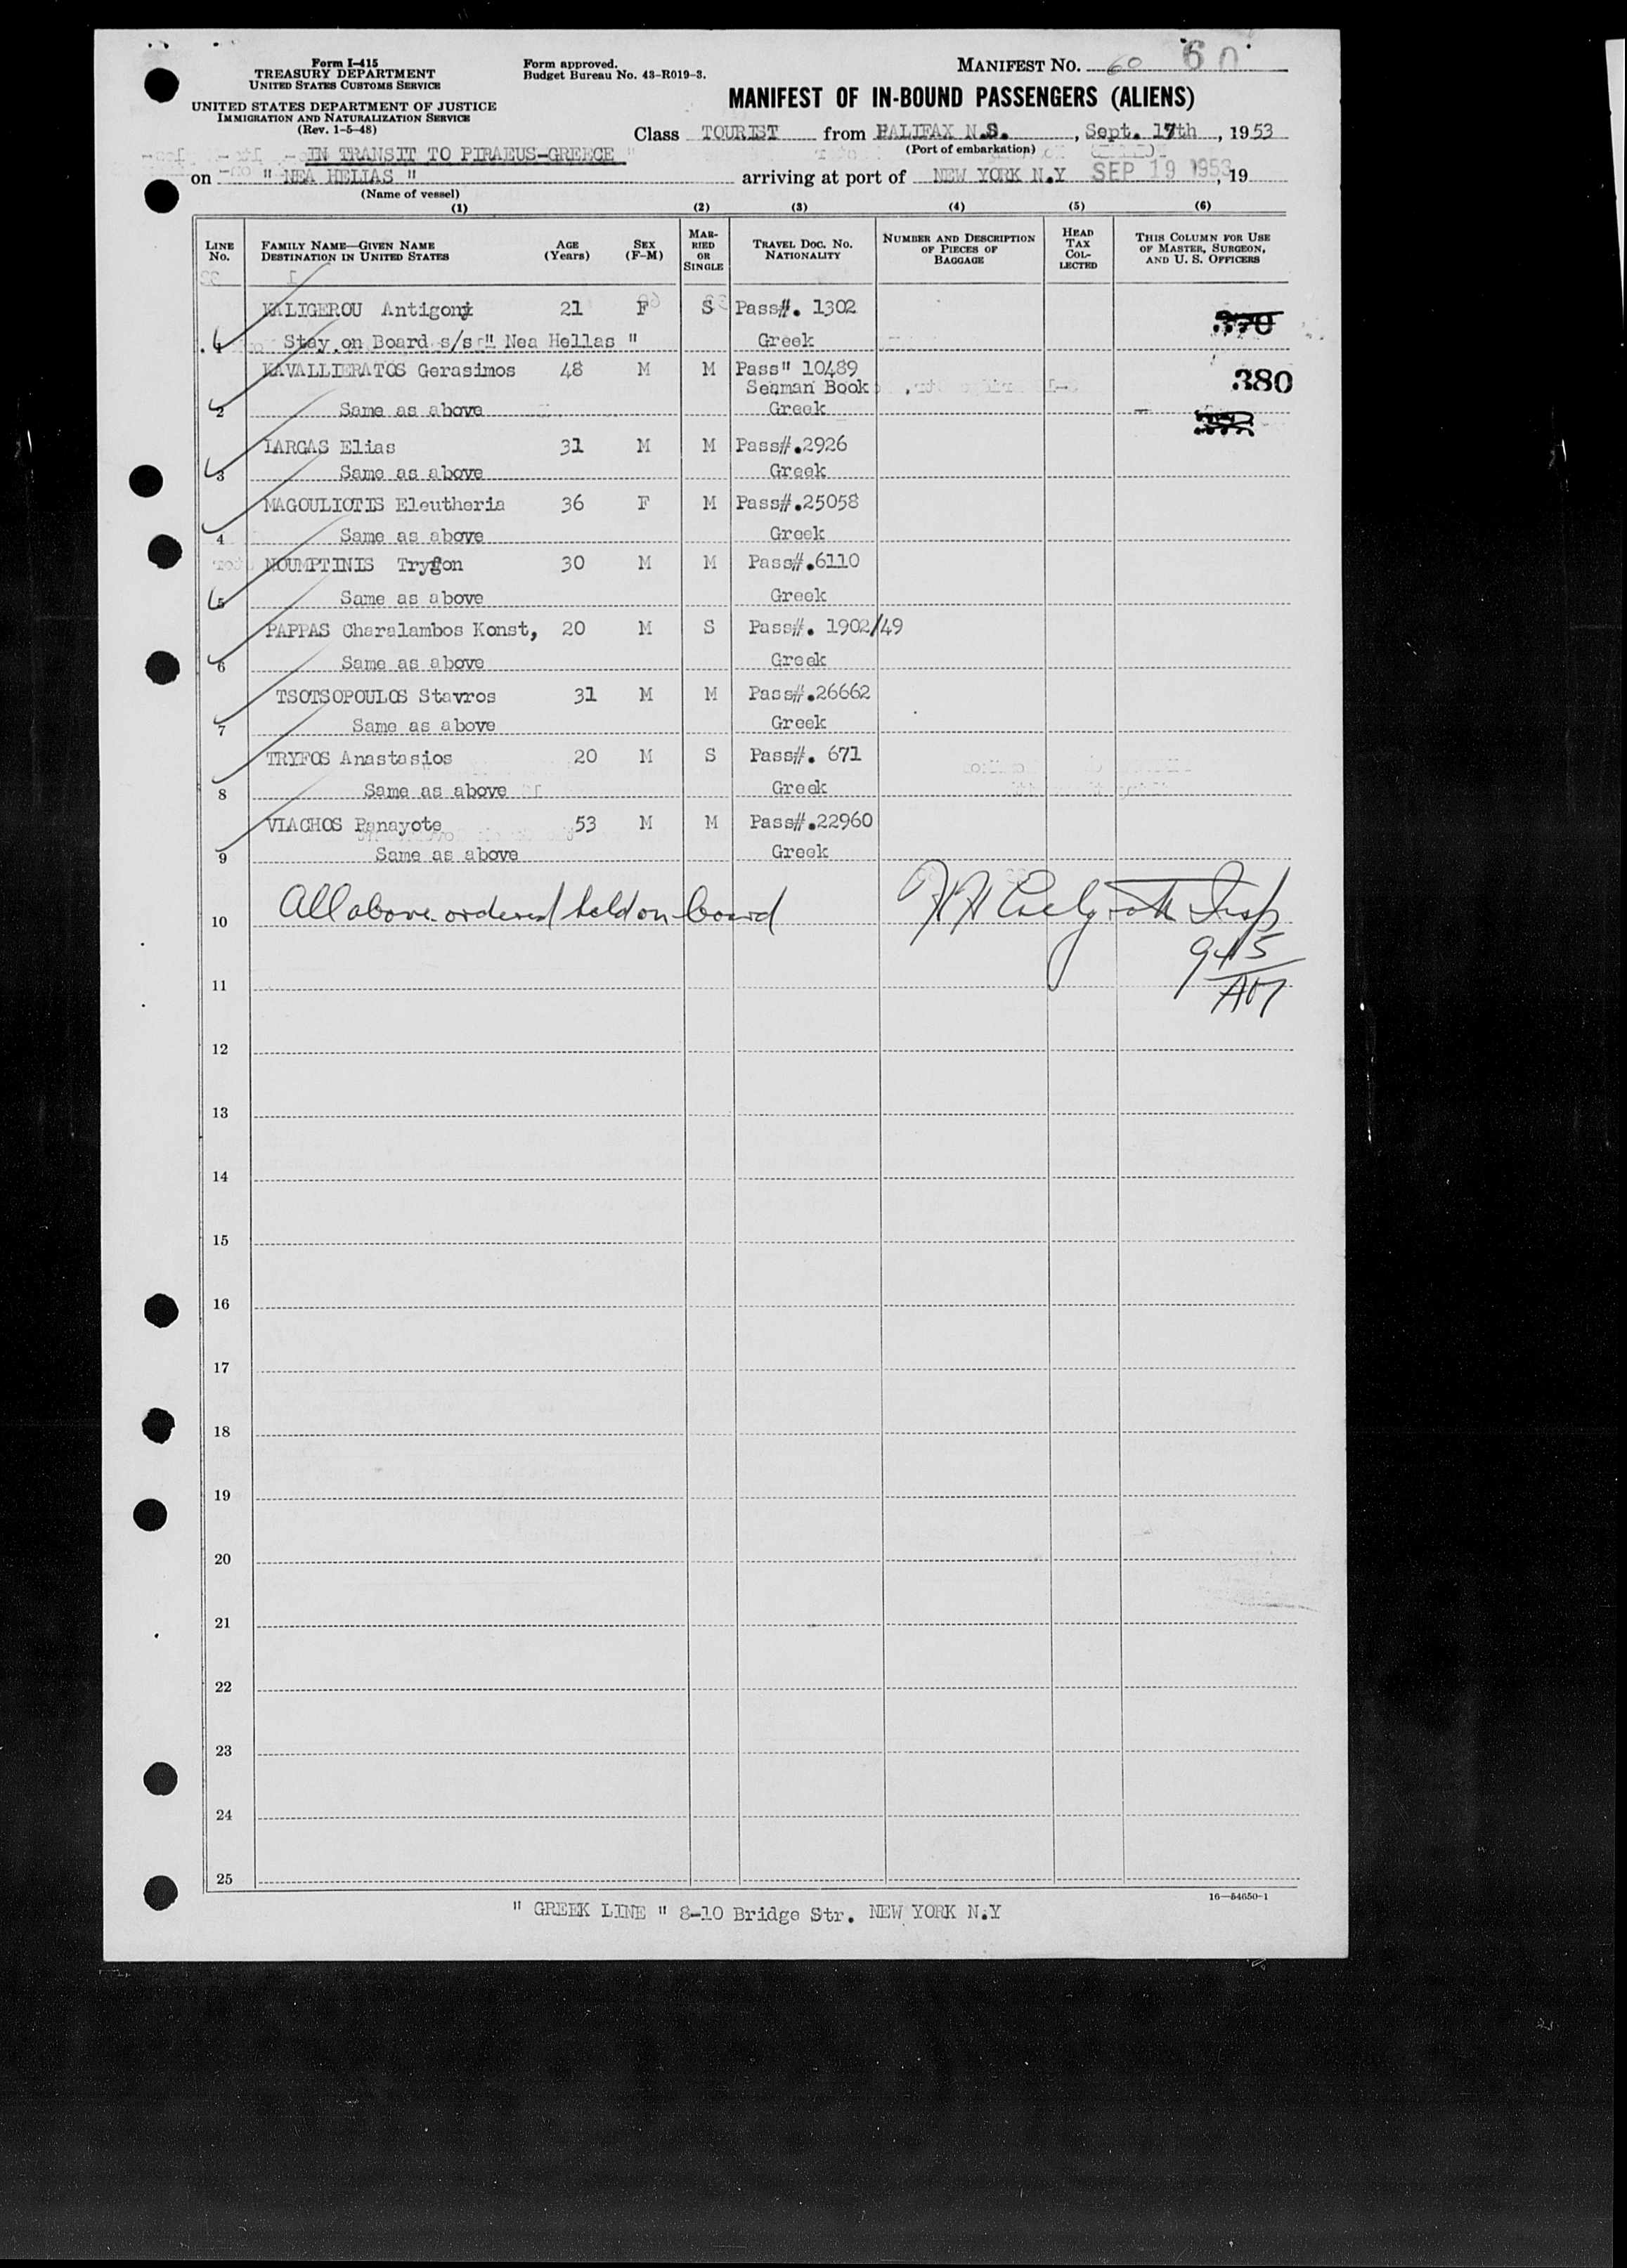 Form I-415
TREASURY DEPARTMENT
UNITED STATES CUSTOMS SERVICE
UNITED STATES DEPARTMENT OF JUSTICE
IMMIGRATION AND NATURALIZATION SERVICE
(Rev. 1-5-48)
Form approved.
Budget Bureau No. 43-R019-3.
MANIFEST NO. 60 60
MANIFEST OF IN-BOUND PASSENGERS (ALIENS)
Class TOURIST from HALIFAX N.S., Sept. 17th, 1953
(Port of embarkation)
IN TRANSIT TO PIRAEUS-GREECE "
on " NEA HELLAS " arriving at port of NEW YORK N.Y SEP 19 1953, 19
(Name of vessel)
(1) (2) (3) (4) (5) (6)
LINE No. FAMILY NAME—GIVEN NAME DESTINATION IN UNITED STATES AGE (Years) SEX (F-M) MARRIED OR SINGLE TRAVEL DOC. NO. NATIONALITY NUMBER AND DESCRIPTION OF PIECES OF BAGGAGE HEAD TAX COLLECTED THIS COLUMN FOR USE OF MASTER, SURGEON, AND U. S. OFFICERS
KALIGEROU Antigoni 21 F S Pass#. 1302 370
1 Stay on Board s/s " Nea Hellas " Greek
KAVALLIERATOS Gerasimos 48 M M Pass" 10489 380
Seaman Book
2 Same as above Greek
LARGAS Elias 31 M M Pass#.2926
3 Same as above Greek
MAGOULIOTIS Eleutheria 36 F M Pass#.25058
4 Same as above Greek
NOUMPTINIS Tryfon 30 M M Pass#.6110
5 Same as above Greek
PAPPAS Charalambos Konst, 20 M S Pass#. 1902/49
6 Same as above Greek
TSOTSOPOULOS Stavros 31 M M Pass#.26662
7 Same as above Greek
TRYFOS Anastasios 20 M S Pass#. 671
8 Same as above Greek
VLACHOS Panayote 53 M M Pass#.22960
9 Same as above Greek
10 All above ordered held on board Insp
945
AM
11
12
13
14
15
16
17
18
19
20
21
22
23
24
25
16—54650-1
" GREEK LINE " 8-10 Bridge Str. NEW YORK N.Y